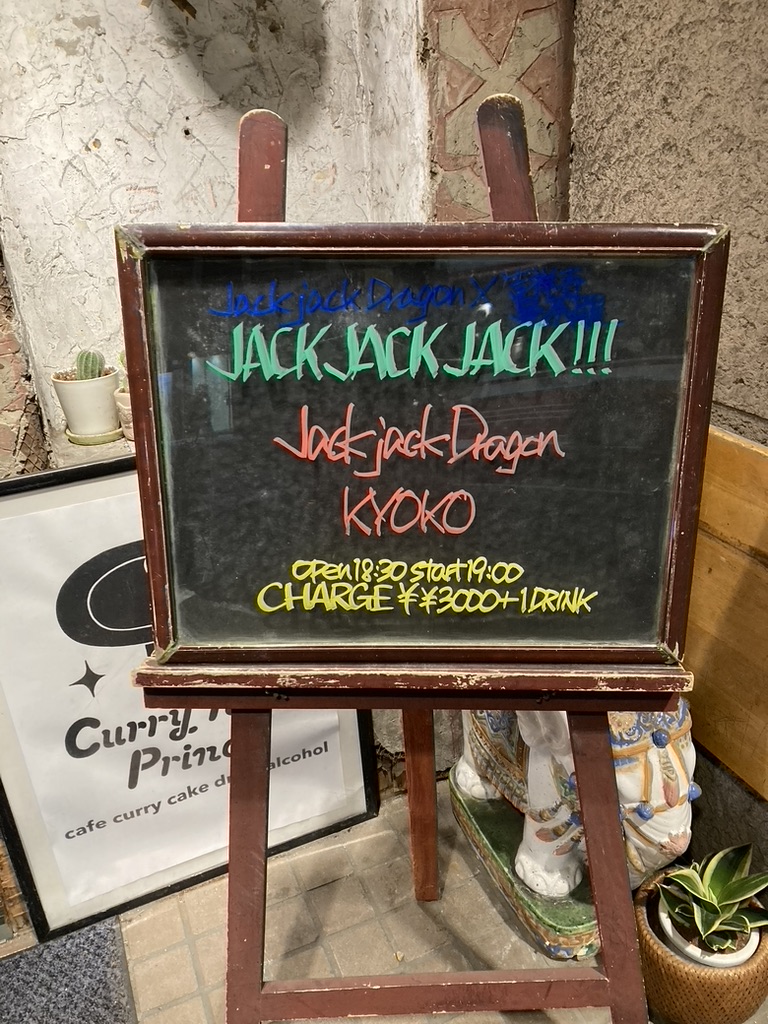 Jackjack Dragon X
JACK JACK JACK!!!
Jackjack Dragon
KYOKO
open 18:30 start 19:00
CHARGE ¥¥3000+1DRINK
Curry
Prin
cafe curry cake alcohol